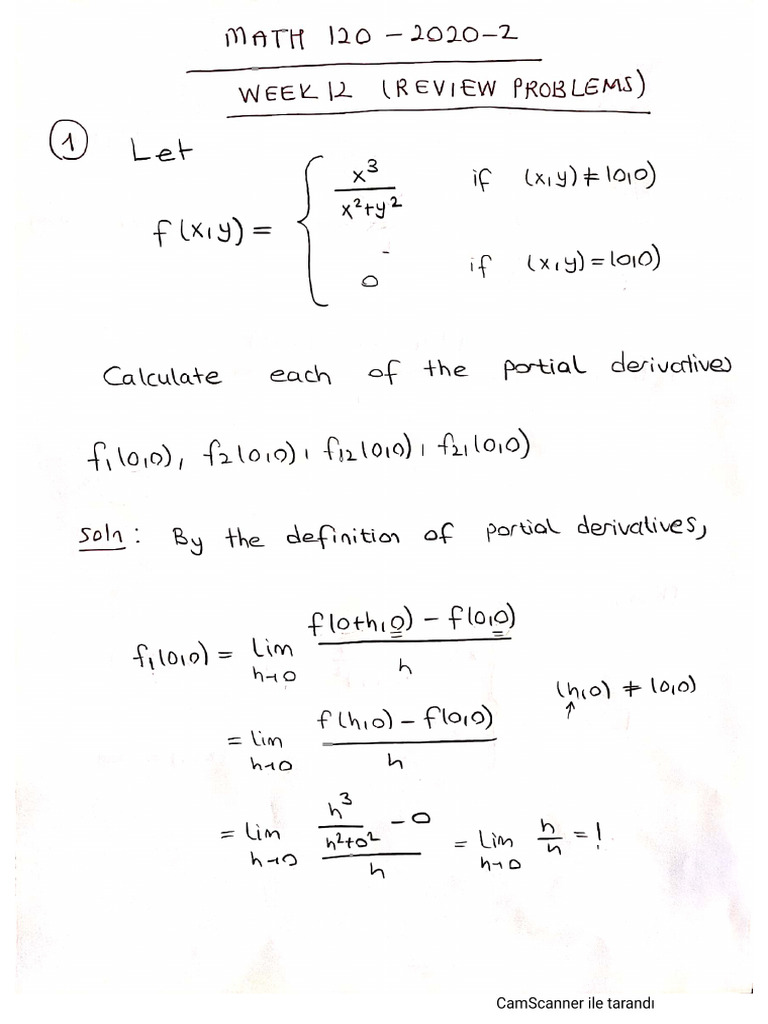 MATH 120 - 2020-2
WEEK 12 (REVIEW PROBLEMS)
① Let
f(x,y) = { x³/(x²+y²) if (x,y) ≠ (0,0)
0 if (x,y) = (0,0)
Calculate each of the partial derivatives
f₁(0,0), f₂(0,0), f₁₂(0,0), f₂₁(0,0)
Soln: By the definition of partial derivatives,
f₁(0,0) = lim h→0 (f(0+h,0) - f(0,0))/h
(h,0) ≠ (0,0)
= lim h→0 (f(h,0) - f(0,0))/h
= lim h→0 (h³/(h²+0²) - 0)/h = lim h→0 h/h = 1
CamScanner ile tarandı